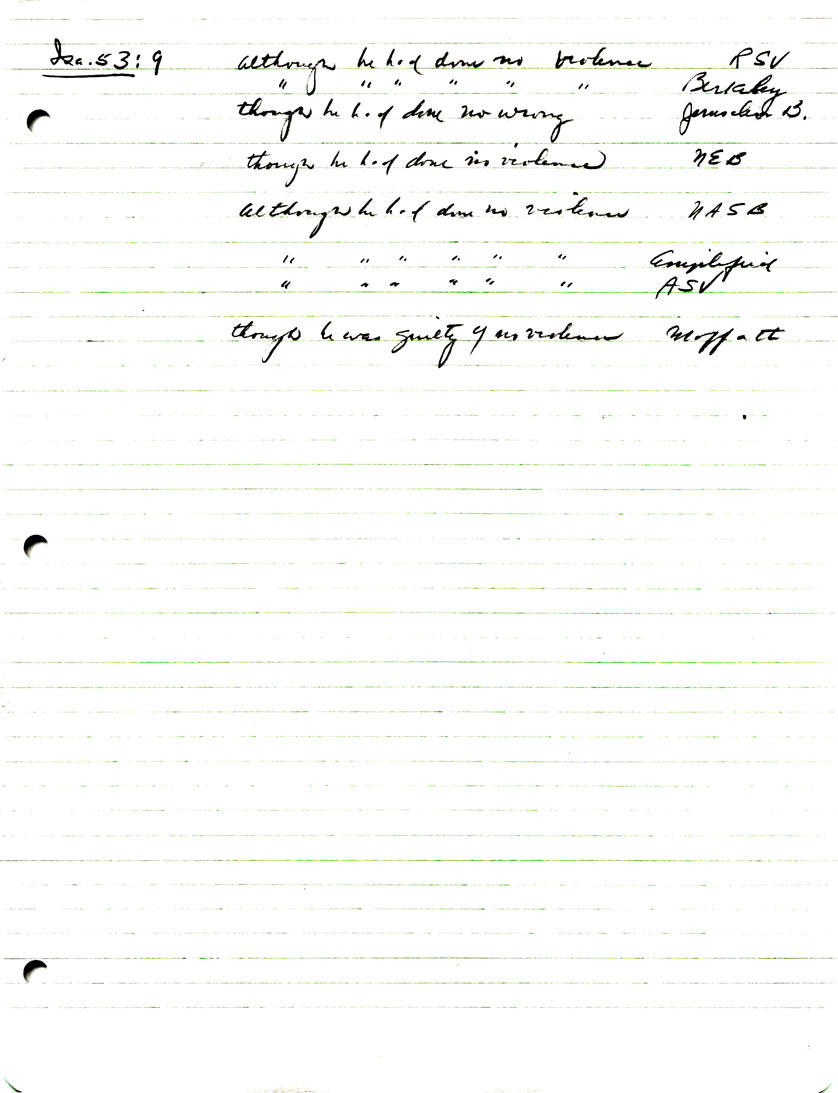 Isa. 53:9 although he had done no violence RSV
" " " " " " Berkeley
though he had done no wrong Jerusalem B.
though he had done no violence NEB
Although he had done no violence NASB
" " " " " " Amplified
" " " " " " ASV
though he was guilty of no violence Moffatt